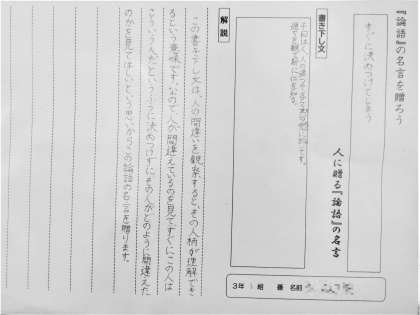 『論語』の名言を贈ろう
すぐに決めつけてしまう
人に贈る『論語』の名言
書き下し文
子曰はく、人の過つや各其の党に於いてす。
過ちを観て斯に仁を知る。
解説
この書き下し文は、人の間違いを観察すると、その人柄が理解でき
るという意味です。なので人が間違えているのを見てすぐにこの人は
こういう人だというふうに決めつけずにその人がどのように間違えた
のかを見てほしいという思いからこの論語の名言を贈ります。
3年 組 番 名前